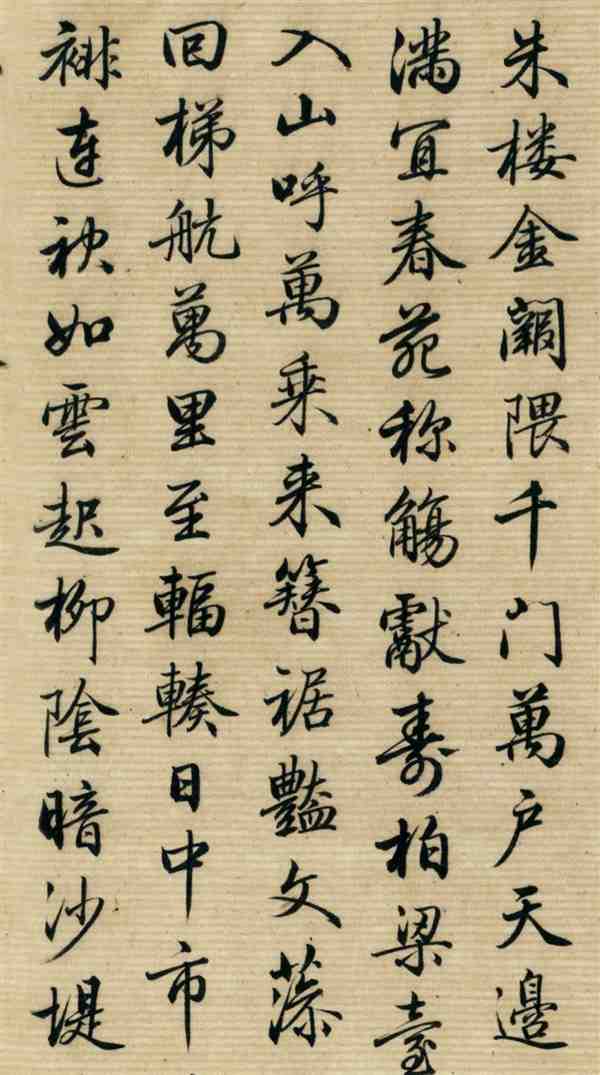 朱楼金阙隈千门萬户天邊
满宜春苑称觴獻寿柏梁臺
入山呼萬乘来簪裾豔文藻
回梯航萬里至輻輳日中市
褂连袂如雲起柳陰暗沙堤